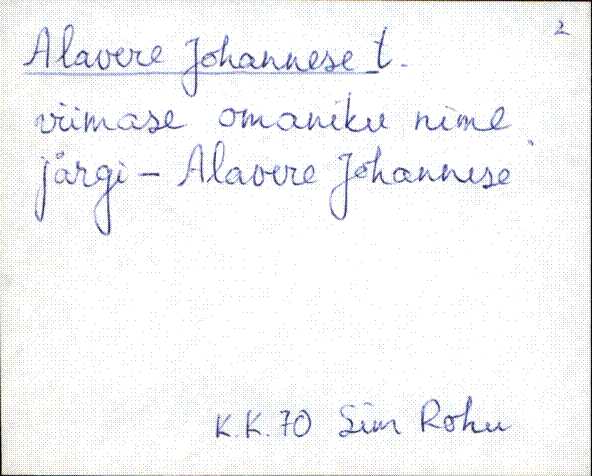 2
Alavere Johannese t.
viimase omaniku nime
järgi – Alavere Johannese
K.K. 70 Sim Rohu